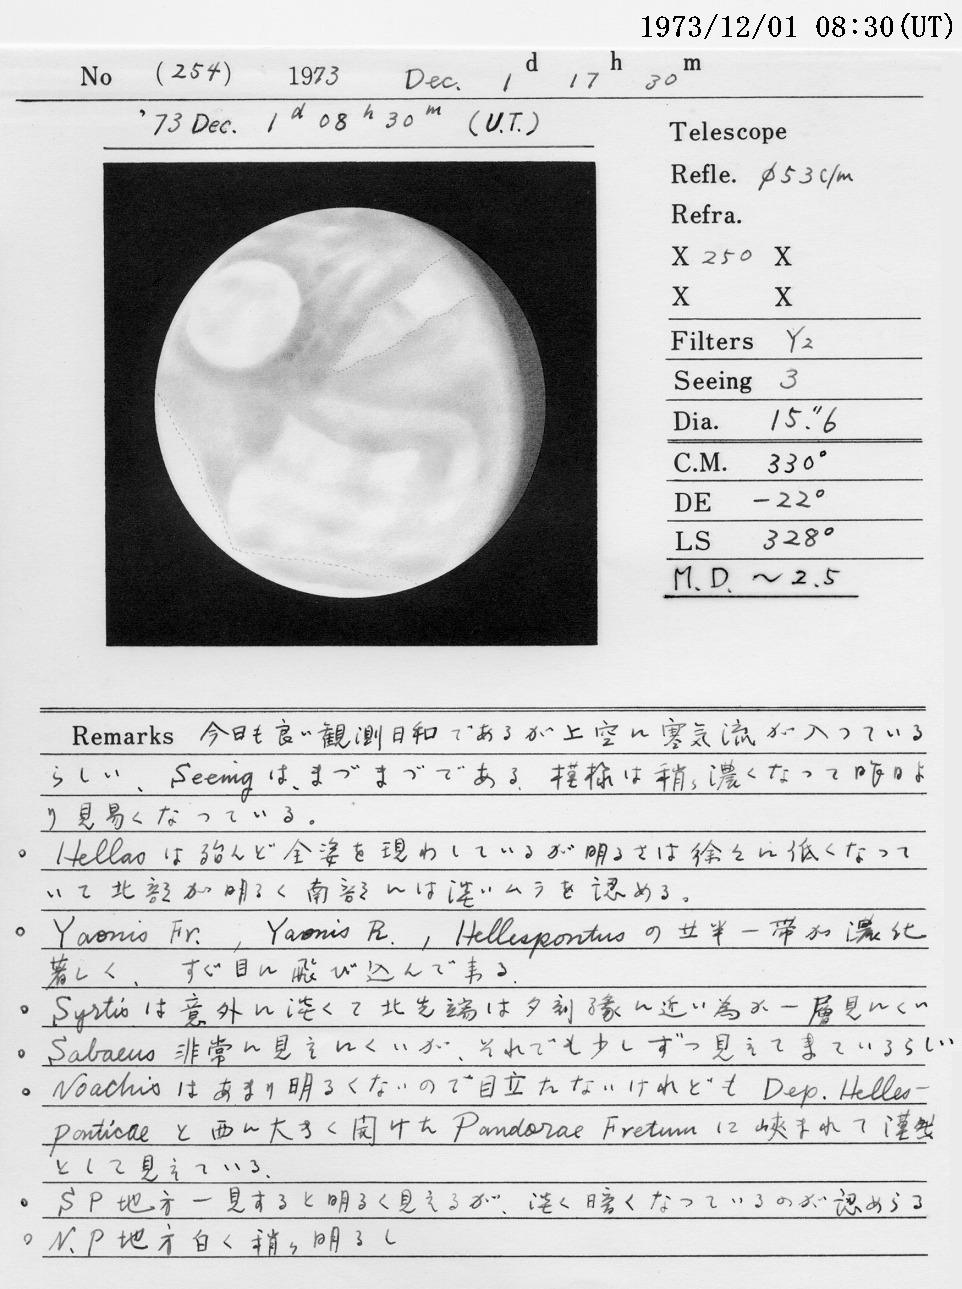 1973/12/01 08:30(UT)
No (254) 1973 Dec. 1 d 17 h 30 m
'73 Dec. 1 d 08 h 30 m (U.T.)
Telescope
Refle. φ53c/m
Refra.
X 250 X
X X
Filters Y2
Seeing 3
Dia. 15."6
C.M. 330°
DE -22°
LS 328°
M.D. ~2.5
Remarks 今日も良い観測日和であるが上空に寒気流が入っている
らしい、Seeingは、まづまづである、模様は稍々濃くなって昨日よ
り見易くなっている。
○ Hellasは殆んど全姿を現わしているが明るさは徐々に低くなって
いて北部が明るく南部には淡いムラを認める。
○ Yaonis Fr. , Yaonis R. , Hellespontusの一帯が濃化
著しく、すぐ目に飛び込んで来る、
○ Syrtisは意外に淡くて北先端は夕刻縁に近い為か一層見にくい
○ Sabaeus 非常に見えにくいが、それでも少しずつ見えて来ているらしい
○ Noachisはあまり明るくないので目立たないけれども Dep. Helles-
ponticae と西に大きく開けた Pandorae Fretum に峡まれて漠然
として見えている、
○ S P 地方一見すると明るく見えるが、淡く暗くなっているのが認めらる
○ N.P 地方白く稍々明るし